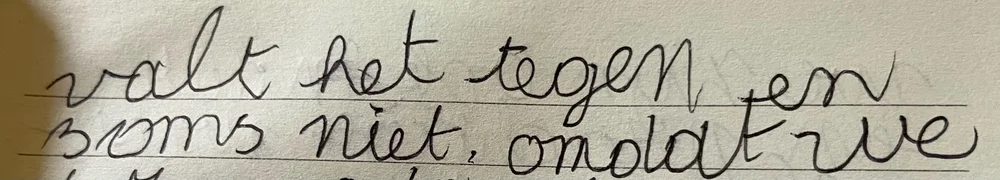 valt het tegen en
soms niet. omdat we